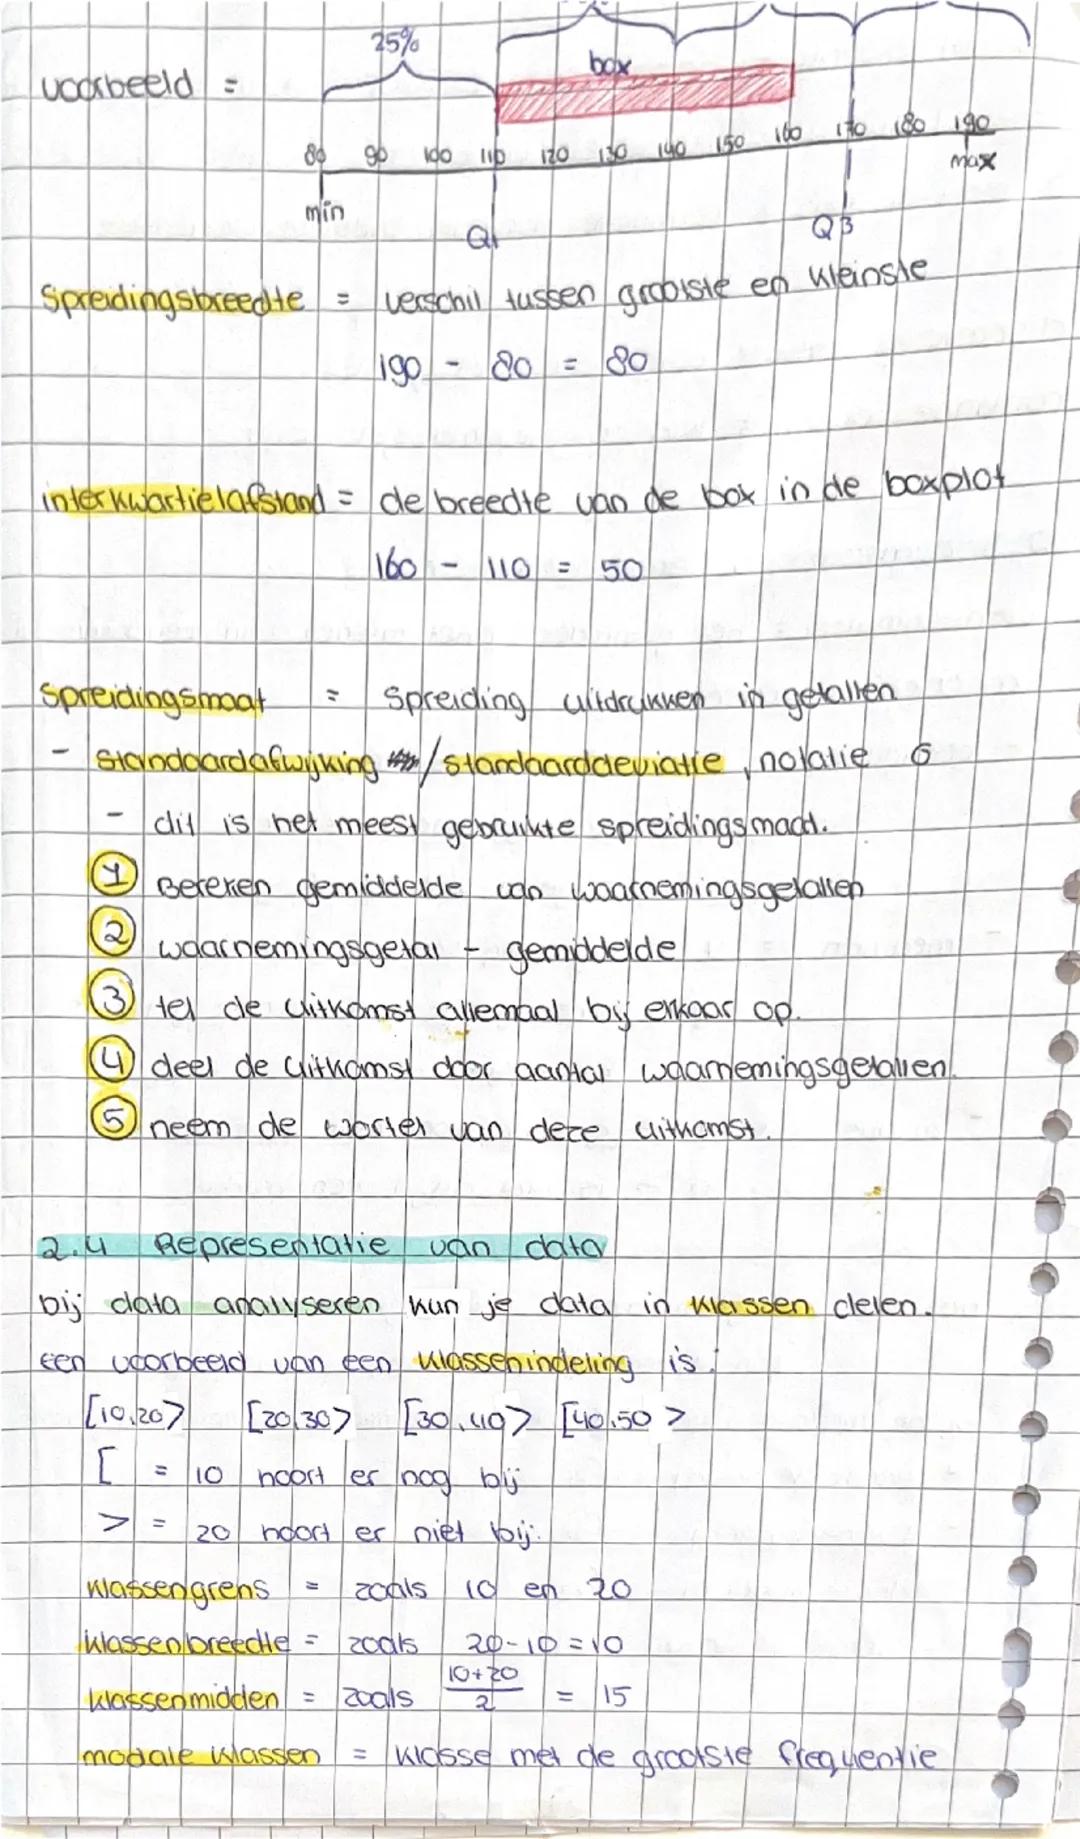 25%
voorbeeld =
box
80 90 100 110 120 130 140 150 160 170 180 190
min
max
Q1
Q3
Spreidingsbreedte = verschil tussen grootste en kleinste
190 - 80 = 80
interkwartielafstand = de breedte van de box in de boxplot
160 - 110 = 50
Spreidingsmaat = Spreiding uitdrukken in getallen
- Standaardafwijking / standaarddeviatie, notatie σ
- dit is het meest gebruikte spreidingsmaat.
1 Bereken gemiddelde van waarnemingsgetallen
2 waarnemingsgetal - gemiddelde
3 tel de uitkomst allemaal bij elkaar op.
4 deel de uitkomst door aantal waarnemingsgetallen.
5 neem de wortel van deze uitkomst.
2.4 Representatie van data
bij data analyseren kun je data in klassen delen.
een voorbeeld van een klassenindeling is:
[10,20> [20,30> [30,40> [40,50>
[ = 10 hoort er nog bij
> = 20 hoort er niet bij.
klassengrens = zoals 10 en 20
klassenbreedte = zoals 20-10=10
klassenmidden = zoals 10+20/2 = 15
modale klassen = klasse met de grootste frequentie